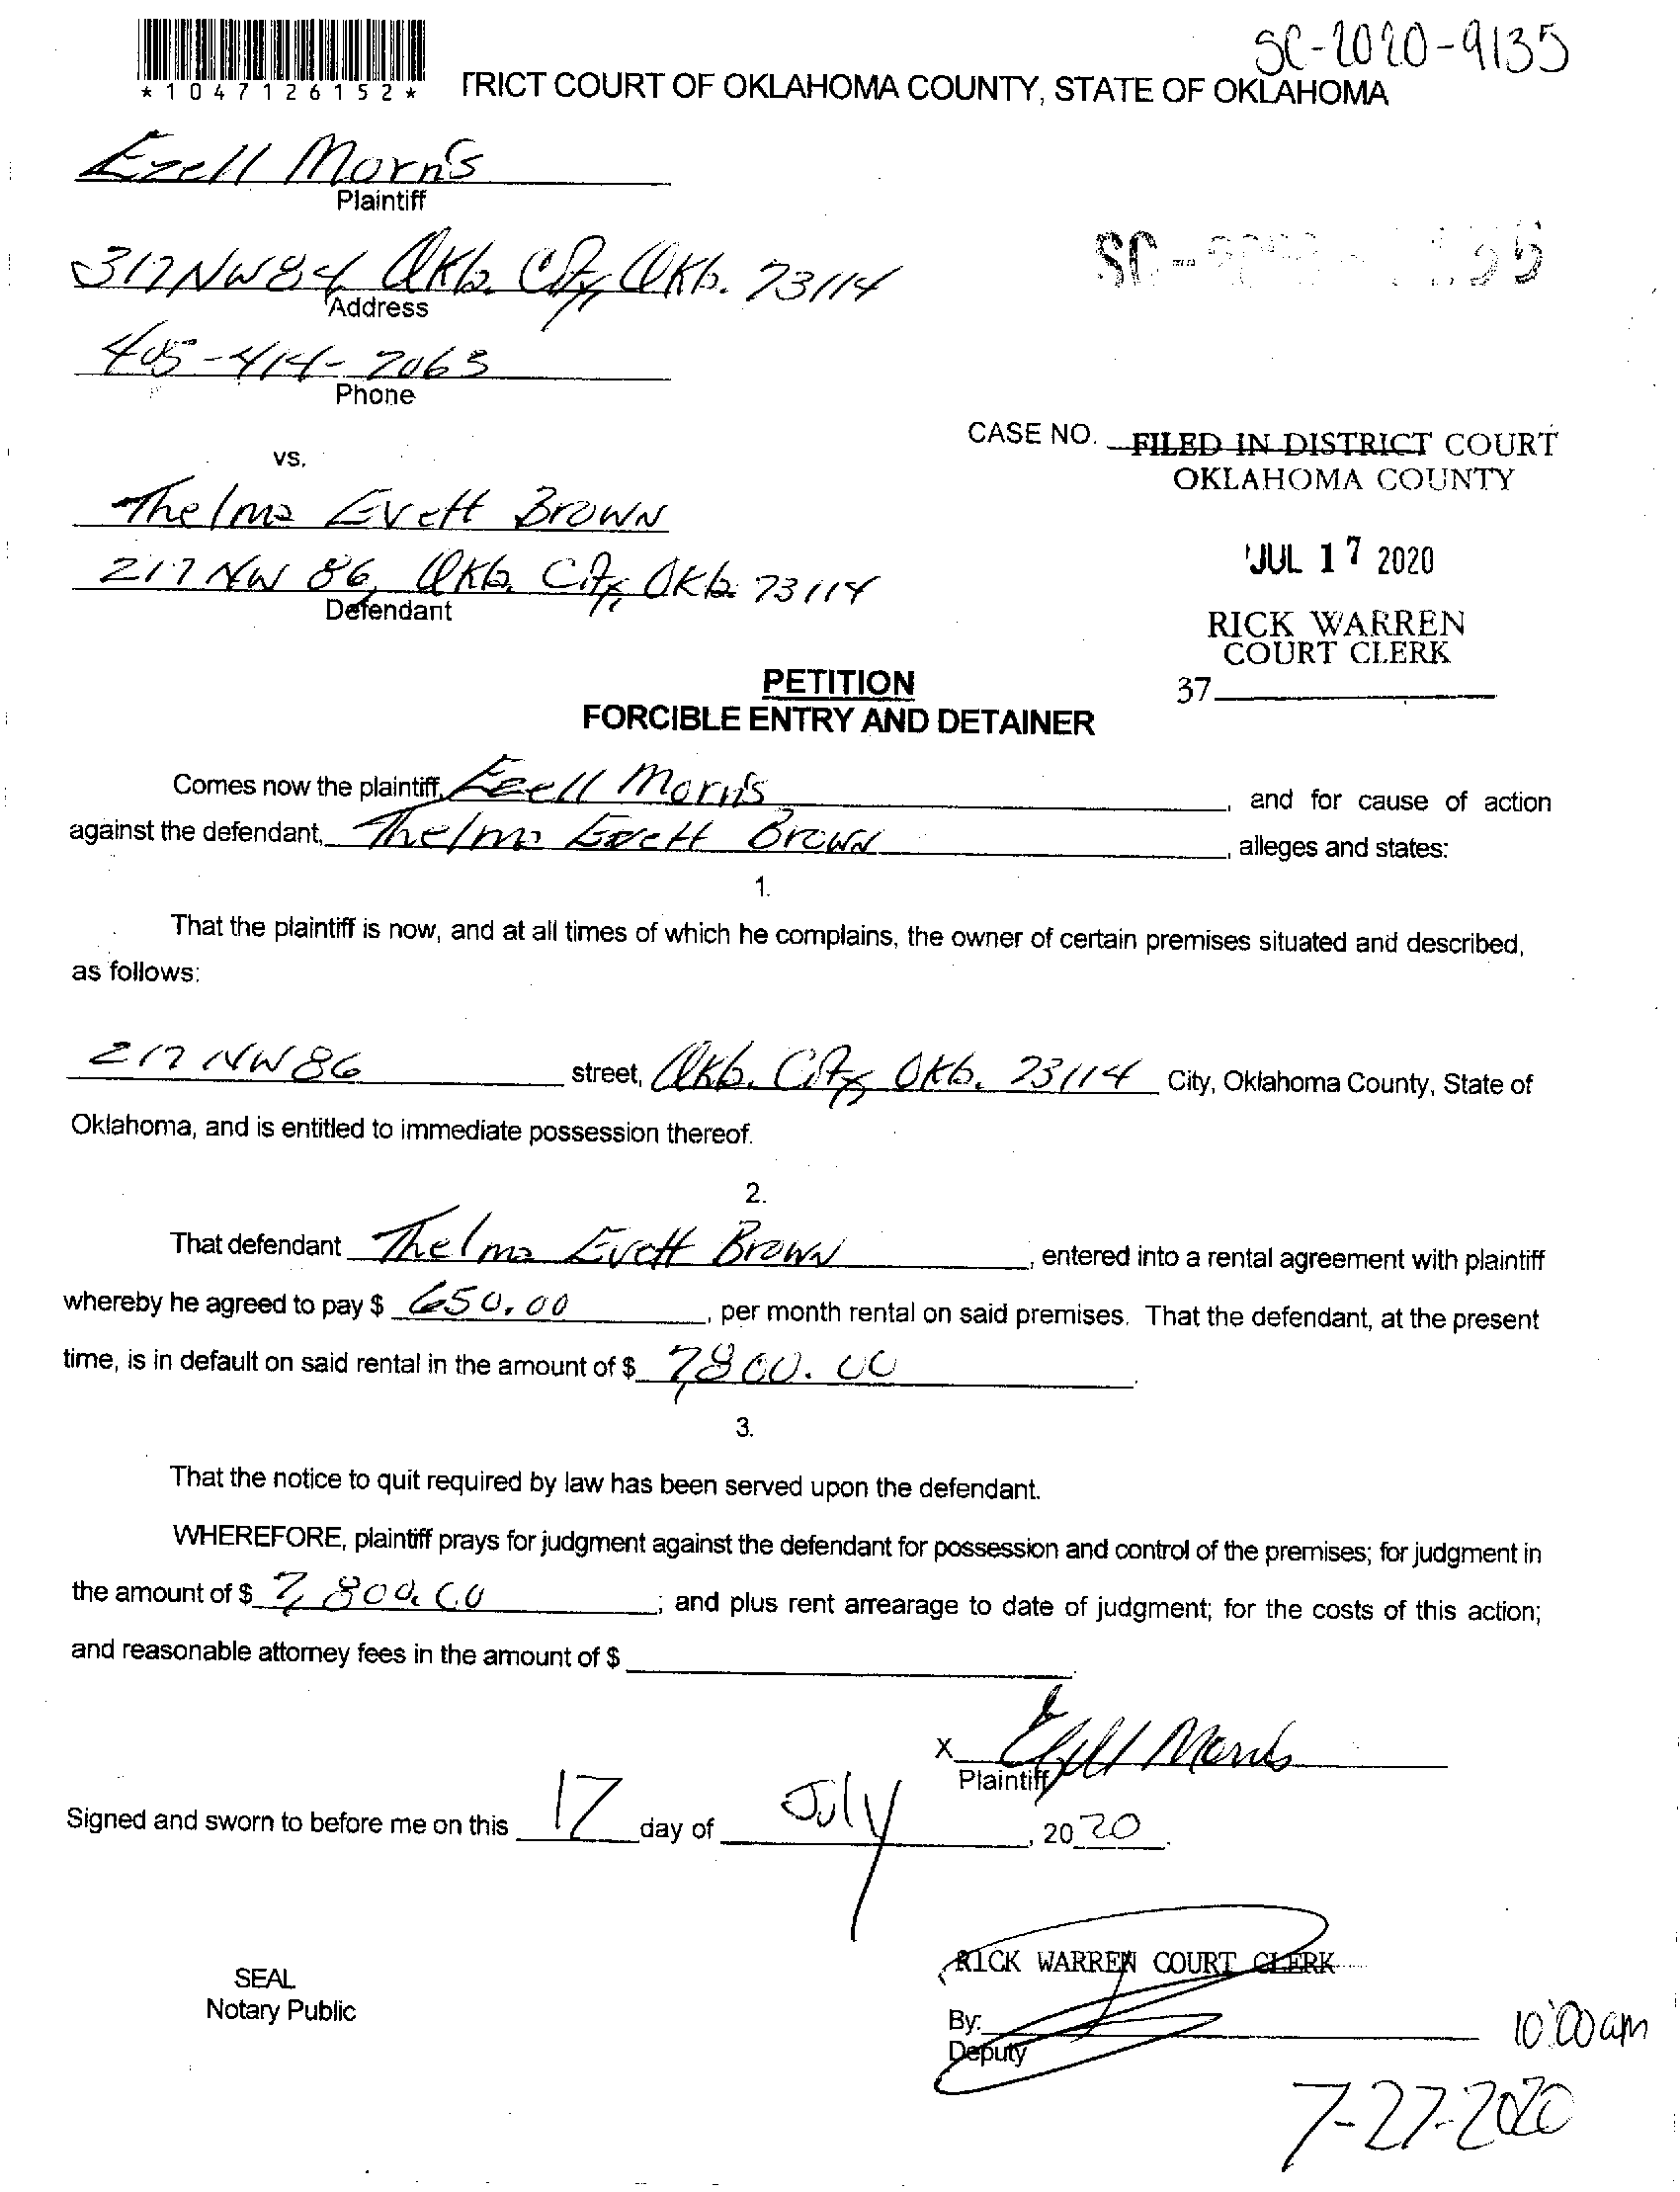 SC-2020-9135
*1047126152*
TRICT COURT OF OKLAHOMA COUNTY, STATE OF OKLAHOMA
Ezell Morris
Plaintiff
317 NW 84 Okla. City, Okla. 73114
Address
405-414-7063
Phone
CASE NO.
FILED IN DISTRICT COURT
OKLAHOMA COUNTY
vs.
Thelma Evett Brown
217 NW 86, Okla. City, Okla. 73114
Defendant
JUL 17 2020
RICK WARREN
COURT CLERK
37
PETITION
FORCIBLE ENTRY AND DETAINER
Comes now the plaintiff, Ezell Morris, and for cause of action
against the defendant, Thelma Evett Brown, alleges and states:
1.
That the plaintiff is now, and at all times of which he complains, the owner of certain premises situated and described,
as follows:
217 NW 86 street, Okla. City, Okla. 73114 City, Oklahoma County, State of
Oklahoma, and is entitled to immediate possession thereof.
2.
That defendant Thelma Evett Brown, entered into a rental agreement with plaintiff
whereby he agreed to pay $ 650.00, per month rental on said premises. That the defendant, at the present
time, is in default on said rental in the amount of $ 7,800.00.
3.
That the notice to quit required by law has been served upon the defendant.
WHEREFORE, plaintiff prays for judgment against the defendant for possession and control of the premises; for judgment in
the amount of $ 7,800.00; and plus rent arrearage to date of judgment; for the costs of this action;
and reasonable attorney fees in the amount of $
X Ezell Morris
Plaintiff
Signed and sworn to before me on this 17 day of July, 2020.
RICK WARREN COURT CLERK
SEAL
Notary Public
By:
Deputy
10:00am
7-27-2020